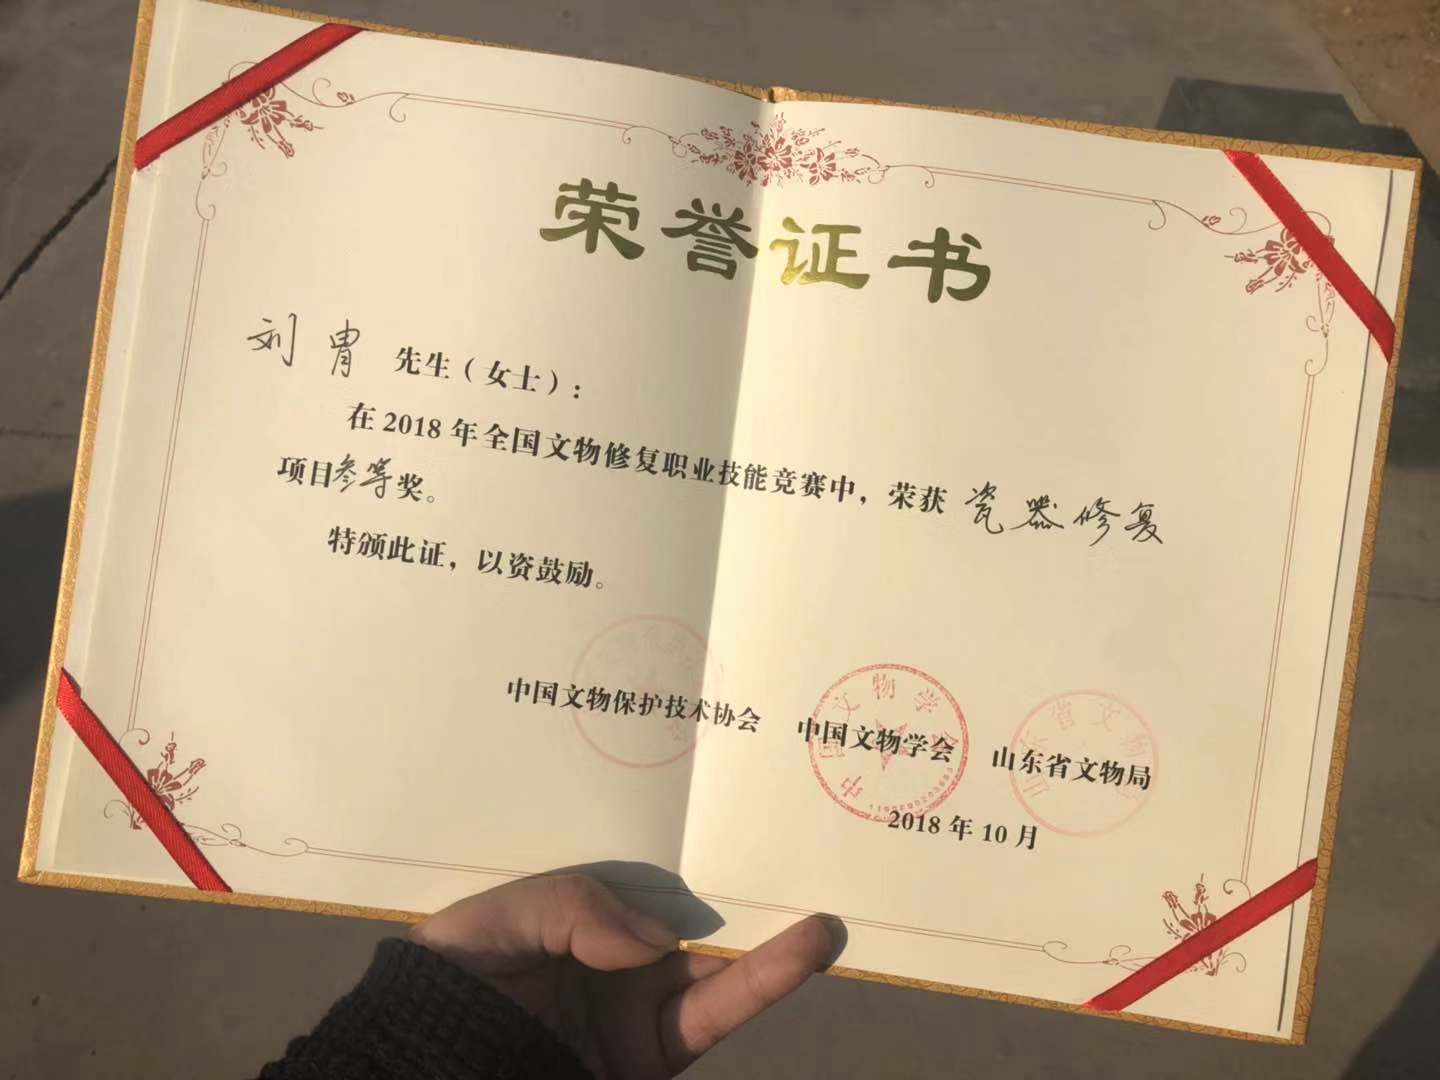 荣誉证书
刘胄 先生（女士）：
在2018年全国文物修复职业技能竞赛中，荣获 瓷器修复
项目叁等奖。
特颁此证，以资鼓励。
中国文物保护技术协会 中国文物学会 山东省文物局
中国文物学会
山东省文物
2018年10月